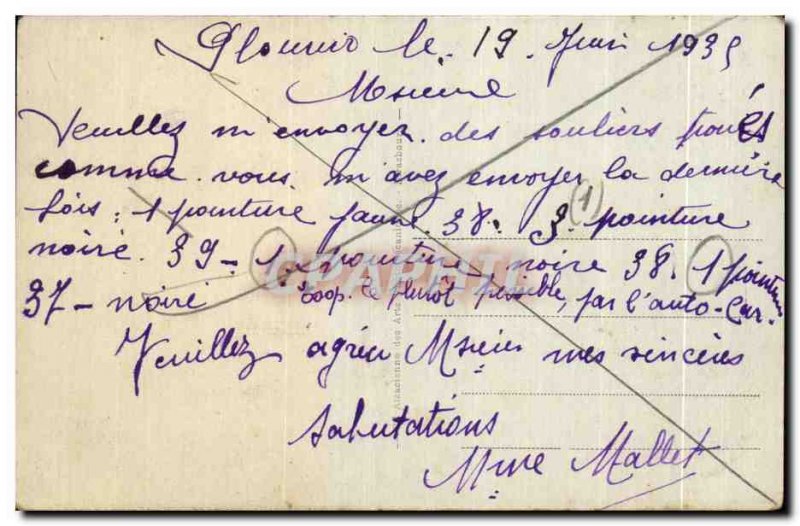 le 19 Juin 1935
Monsieur
Veuillez m'envoyer des souliers troués
comme vous m'avez envoyer la dernière
fois : 1 pointure jaune 38. 3 (1) pointure
noire. 39 - 1 pointure noire 38. 1 pointure
37 - noire le plutôt possible, par l'auto-car.
Veuillez agréer Msieur mes sincères
salutations
Mme Mallet
CPARAMA